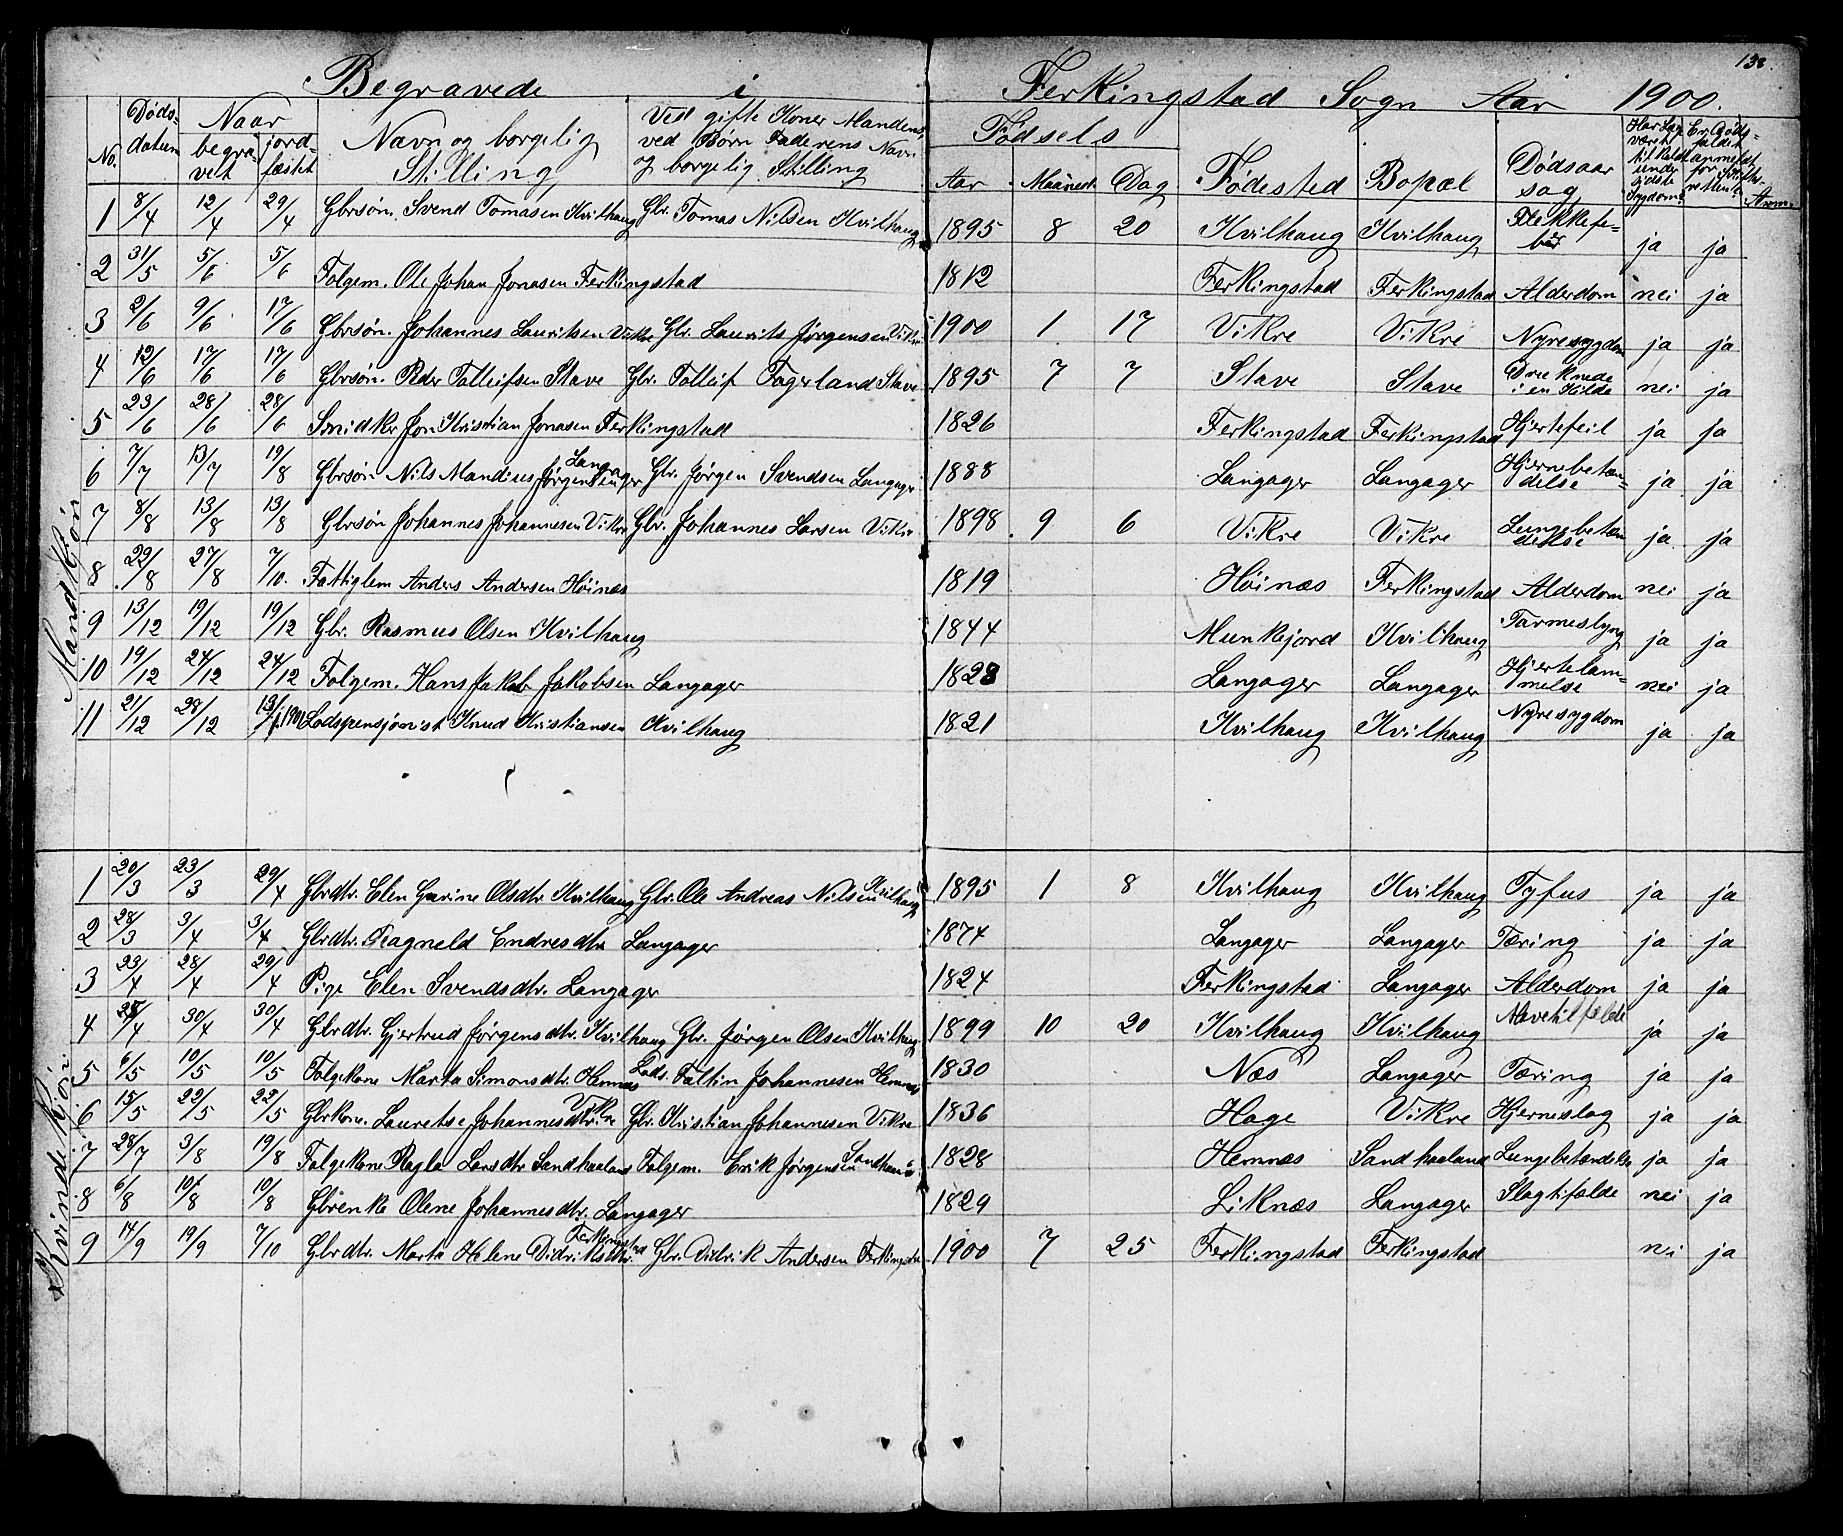 138.
Begravede i Ferkingstad Sogn Aar 1900.
No. Dødsdatum Naar begravet jordfæstet Navn og borgelig Stilling Ved gifte Koner Mandens ved Børn Faderens Navn og borgelig Stilling Fødsels Aar Maaned Dag Fødested Bopæl Dødsaarsag Anm.
Mandkjøn
1 8/4 12/4 29/4 Gbrsøn. Svend Tomasen Kvilhaug Gbr. Tomas Nilsen Kvilhaug 1895 8 20 Kvilhaug Kvilhaug Flekkefeber ja ja
2 31/5 5/6 5/6 Folgem. Ole Johan Jonasen Ferkingstad 1812 Ferkingstad Ferkingstad Alderdom nei ja
3 2/6 9/6 17/6 Gbrsøn. Johannes Lauritsen Vikre Gbr. Laurits Jørgensen Vikre 1900 1 17 Vikre Vikre Nyresygdom ja ja
4 12/6 17/6 17/6 Gbrsøn. Peder Tolleifsen Stave Gbr. Tolleif Fagerland Stave 1895 7 7 Stave Stave Druknede i en Kilde nei ja
5 23/6 28/6 28/6 Smidker Jon Kristian Jonasen Ferkingstad 1826 Ferkingstad Ferkingstad Hjertefeil ja ja
6 7/7 13/7 19/8 Gbrsøn Nils Mandius Jørgensen Langager Gbr. Jørgen Svendsen Langager 1888 Langager Langager Hjernebetændelse ja ja
7 8/8 13/8 13/8 Gbrsøn Johannes Johannesen Vikre Gbr. Johannes Larsen Vikre 1898 9 6 Vikre Vikre Lungebetændelse ja ja
8 22/8 27/8 7/10. Fattiglem Anders Andersen Høinæs 1819 Høinæs Ferkingstad Alderdom nei ja
9 13/12 19/12 19/12 Gbr. Rasmus Olsen Kvilhaug 1844 Munkejord Kvilhaug Tarmeslyng ja ja
10 19/12 24/12 24/12 Folgem. Hans Jakob Jakobsen Langager 1823 Langager Langager Hjertelammelse nei ja
11 21/12 28/12 13/1 1901 Lodspensjonist Knud Kristiansen Kvilhaug 1821 Kvilhaug Kvilhaug Nyresygdom ja ja
Kvindekjøn
1 20/3 23/3 29/4 Gbrdtr. Elen Gurine Olsdtr. Kvilhaug Gbr. Ole Andreas Nilsen Kvilhaug 1895 1 8 Kvilhaug Kvilhaug Tyfus ja ja
2 28/3 3/4 3/4 Gbrdtr. Ragneld Endresdtr Langager 1874 Langager Langager Tæring ja ja
3 23/4 28/4 29/4 Pige Elen Svendsdtr. Langager 1824 Ferkingstad Langager Alderdom ja ja
4 28/4 30/4 30/4 Gbrdtr. Gjertrud Jørgensdtr. Kvilhaug Gbr. Jørgen Olsen Kvilhaug 1899 10 20 Kvilhaug Kvilhaug ja ja
5 6/5 10/5 10/5 Folgekone Marta Simonsdtr. Hemnæs Lods. Faltin Johannesen Hemnæs 1830 Næs Langager Tæring ja ja
6 15/5 22/5 22/5 Gbrkone. Lauretse Johannesdtr. Vikre Gbr. Kristian Johannesen Vikre 1836 Hage Vikre Hjerneslag ja ja
7 28/7 3/8 19/8 Folgekone Ragla Larsdtr Sandhaaland Folgem. Erik Jørgensen 1828 Hemnæs Sandhaaland Lungebetændelse ja ja
8 6/8 10/8 10/8 Gbrenke Olene Johannesdtr. Langager 1829 Liknæs Langager Slagtifælde nei ja
9 14/9 19/9 7/10 Gbrdtr. Marta Helene Didriksdtr. Ferkingstad Gbr. Didrik Andersen Ferkingstad 1900 7 25 Ferkingstad Ferkingstad nei ja